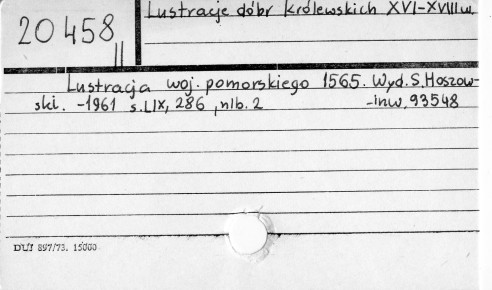 20 458
II
Lustracje dóbr królewskich XVI-XVIII w.
Lustracja woj. pomorskiego 1565. Wyd. S. Hoszow-
ski. - 1961 s. LIX, 286, nlb. 2 - inw. 93548
DUJ 897/73. 15000